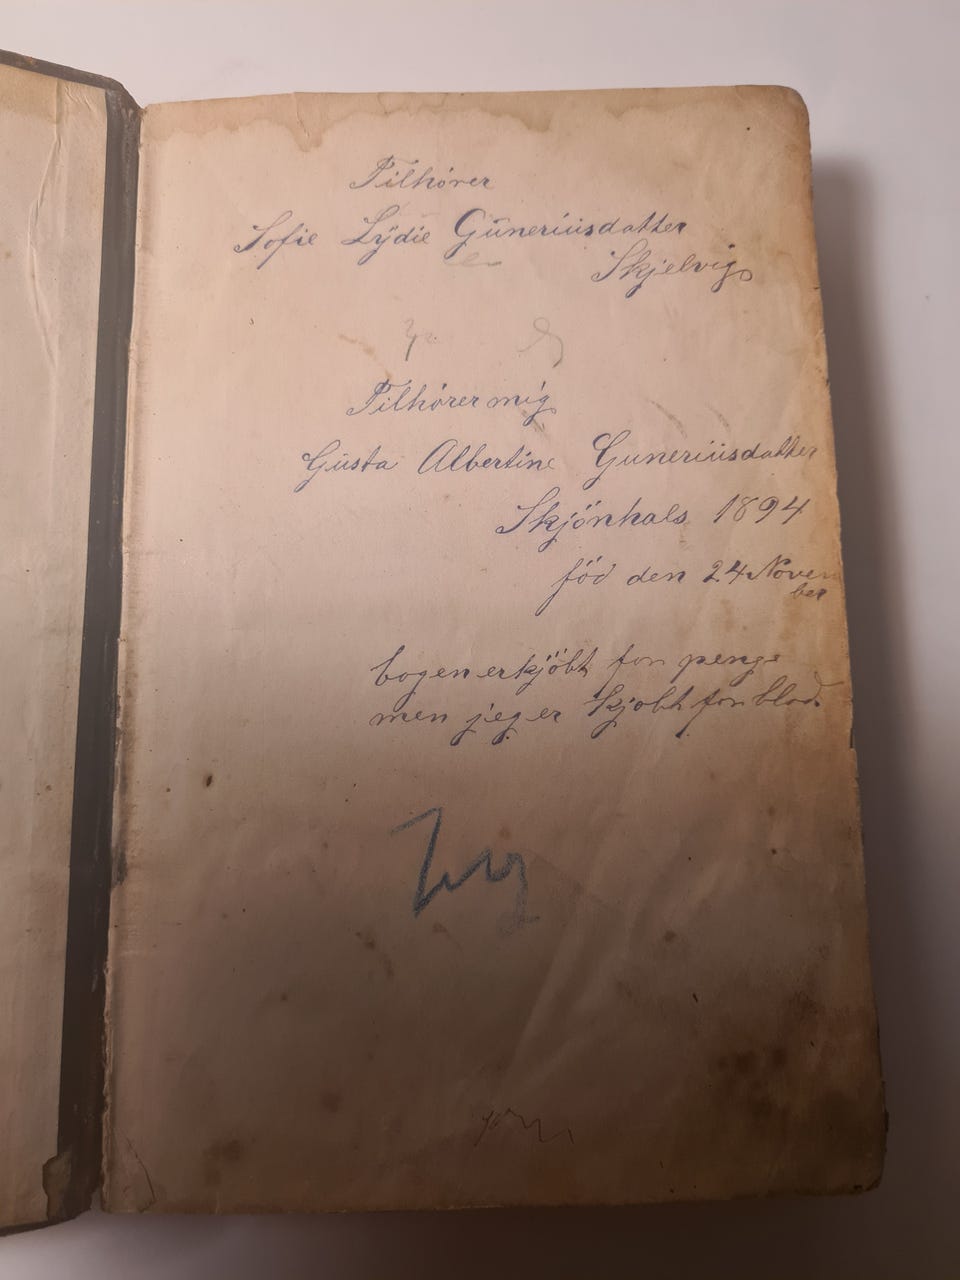 Tilhórer
Sofie Lydie Guneriusdatter
Skjelvig
Tilhórer mig
Gusta Albertine Guneriusdatter
Skjönhals 1894
föd den 24 Novem
ber
bogen er kjöbt for penge
men jeg er kjobt for blod.